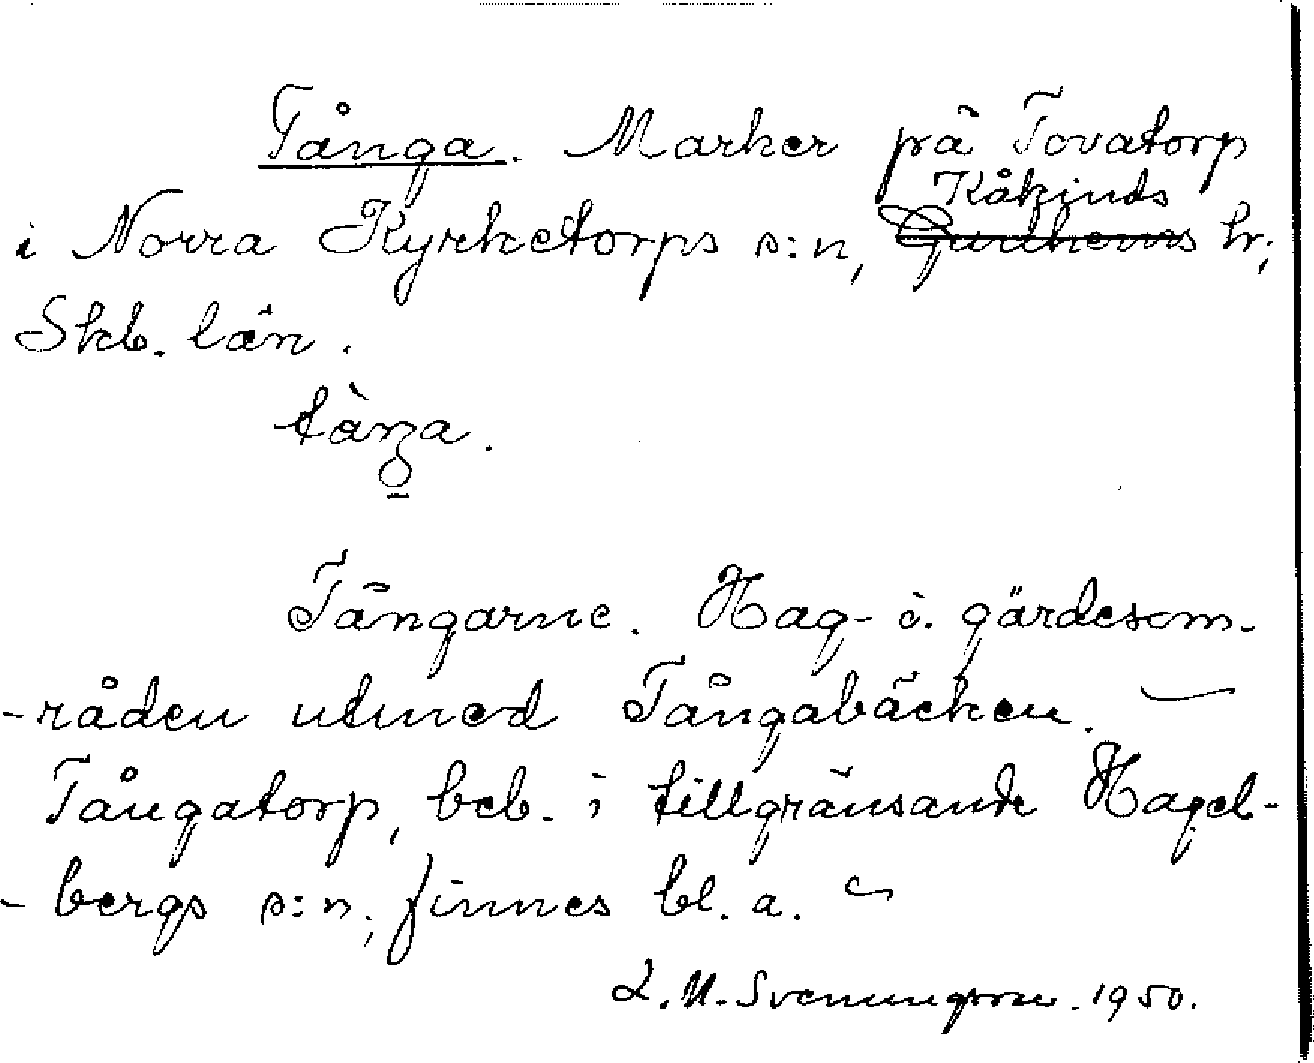 Tånga. Marker på Tovatorp
Kåkinds
i Norra Kyrketorps s:n, Gudhems hr;
Skb. län.
Tångarne. Hag- o. gärdesom-
-råden utmed Tångabäcken. —
Tångatorp, beb. i tillgränsande Hagel-
-bergs s:n; finnes bl. a. ~
L. M. Svenungsson. 1950.